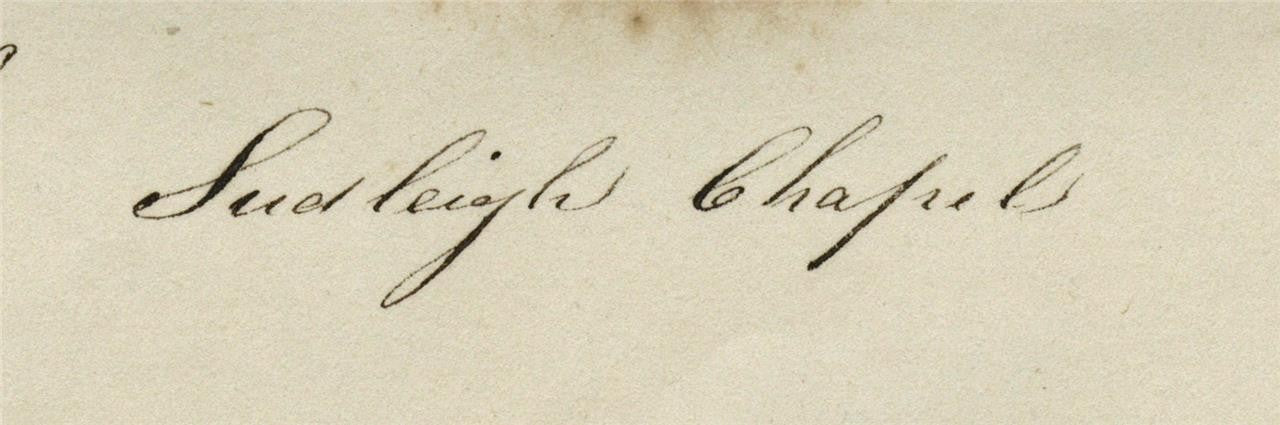 Sudleigh Chapel